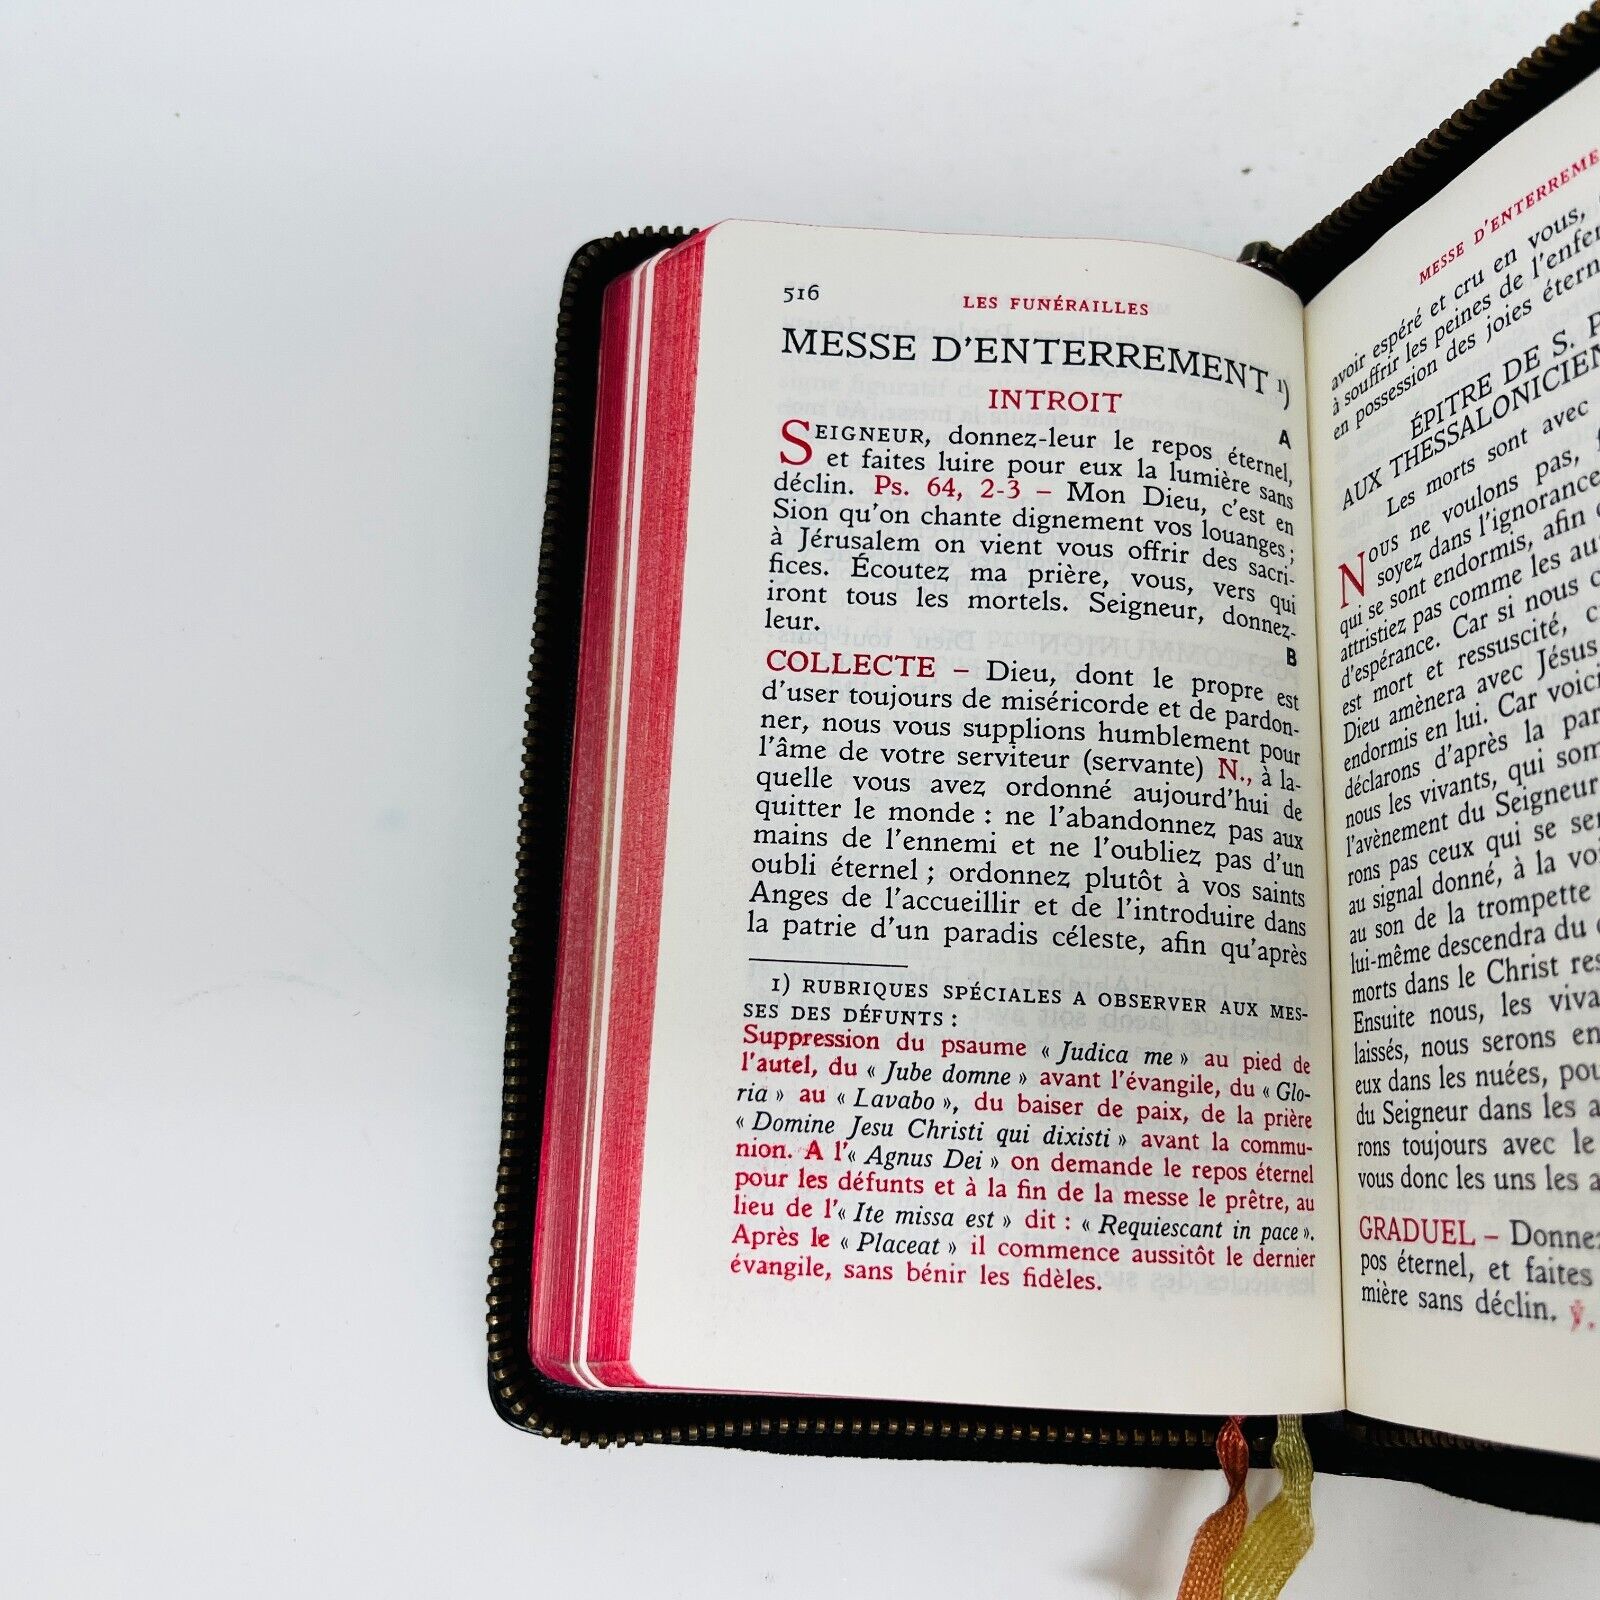 516
LES FUNÉRAILLES
MESSE D'ENTERREMENT 1)
INTROIT
A
SEIGNEUR, donnez-leur le repos éternel,
et faites luire pour eux la lumière sans
déclin. Ps. 64, 2-3 – Mon Dieu, c'est en
Sion qu'on chante dignement vos louanges ;
à Jérusalem on vient vous offrir des sacri-
fices. Écoutez ma prière, vous, vers qui
iront tous les mortels. Seigneur, donnez-
leur.
B
COLLECTE – Dieu, dont le propre est
d'user toujours de miséricorde et de pardon-
ner, nous vous supplions humblement pour
l'âme de votre serviteur (servante) N., à la-
quelle vous avez ordonné aujourd'hui de
quitter le monde : ne l'abandonnez pas aux
mains de l'ennemi et ne l'oubliez pas d'un
oubli éternel ; ordonnez plutôt à vos saints
Anges de l'accueillir et de l'introduire dans
la patrie d'un paradis céleste, afin qu'après
1) RUBRIQUES SPÉCIALES A OBSERVER AUX MES-
SES DES DÉFUNTS :
Suppression du psaume « Judica me » au pied de
l'autel, du « Jube domne » avant l'évangile, du « Glo-
ria » au « Lavabo », du baiser de paix, de la prière
« Domine Jesu Christi qui dixisti » avant la commu-
nion. A l'« Agnus Dei » on demande le repos éternel
pour les défunts et à la fin de la messe le prêtre, au
lieu de l'« Ite missa est » dit : « Requiescant in pace ».
Après le « Placeat » il commence aussitôt le dernier
évangile, sans bénir les fidèles.
MESSE D'ENTERREME
avoir espéré et cru en vous,
à souffrir les peines de l'enfer
en possession des joies étern
ÉPITRE DE S. P
AUX THESSALONICIEN
Les morts sont avec
Nous ne voulons pas,
soyez dans l'ignorance
qui se sont endormis, afin
attristiez pas comme les au
d'espérance. Car si nous c
est mort et ressuscité,
Dieu amènera avec Jésus
endormis en lui. Car voici
déclarons d'après la par
nous les vivants, qui som
l'avènement du Seigneur
rons pas ceux qui se ser
au signal donné, à la voi
au son de la trompette
lui-même descendra du c
morts dans le Christ res
Ensuite nous, les viva
laissés, nous serons en
eux dans les nuées, pou
du Seigneur dans les a
rons toujours avec le
vous donc les uns les a
GRADUEL – Donnez
pos éternel, et faites
mière sans déclin. ℣.